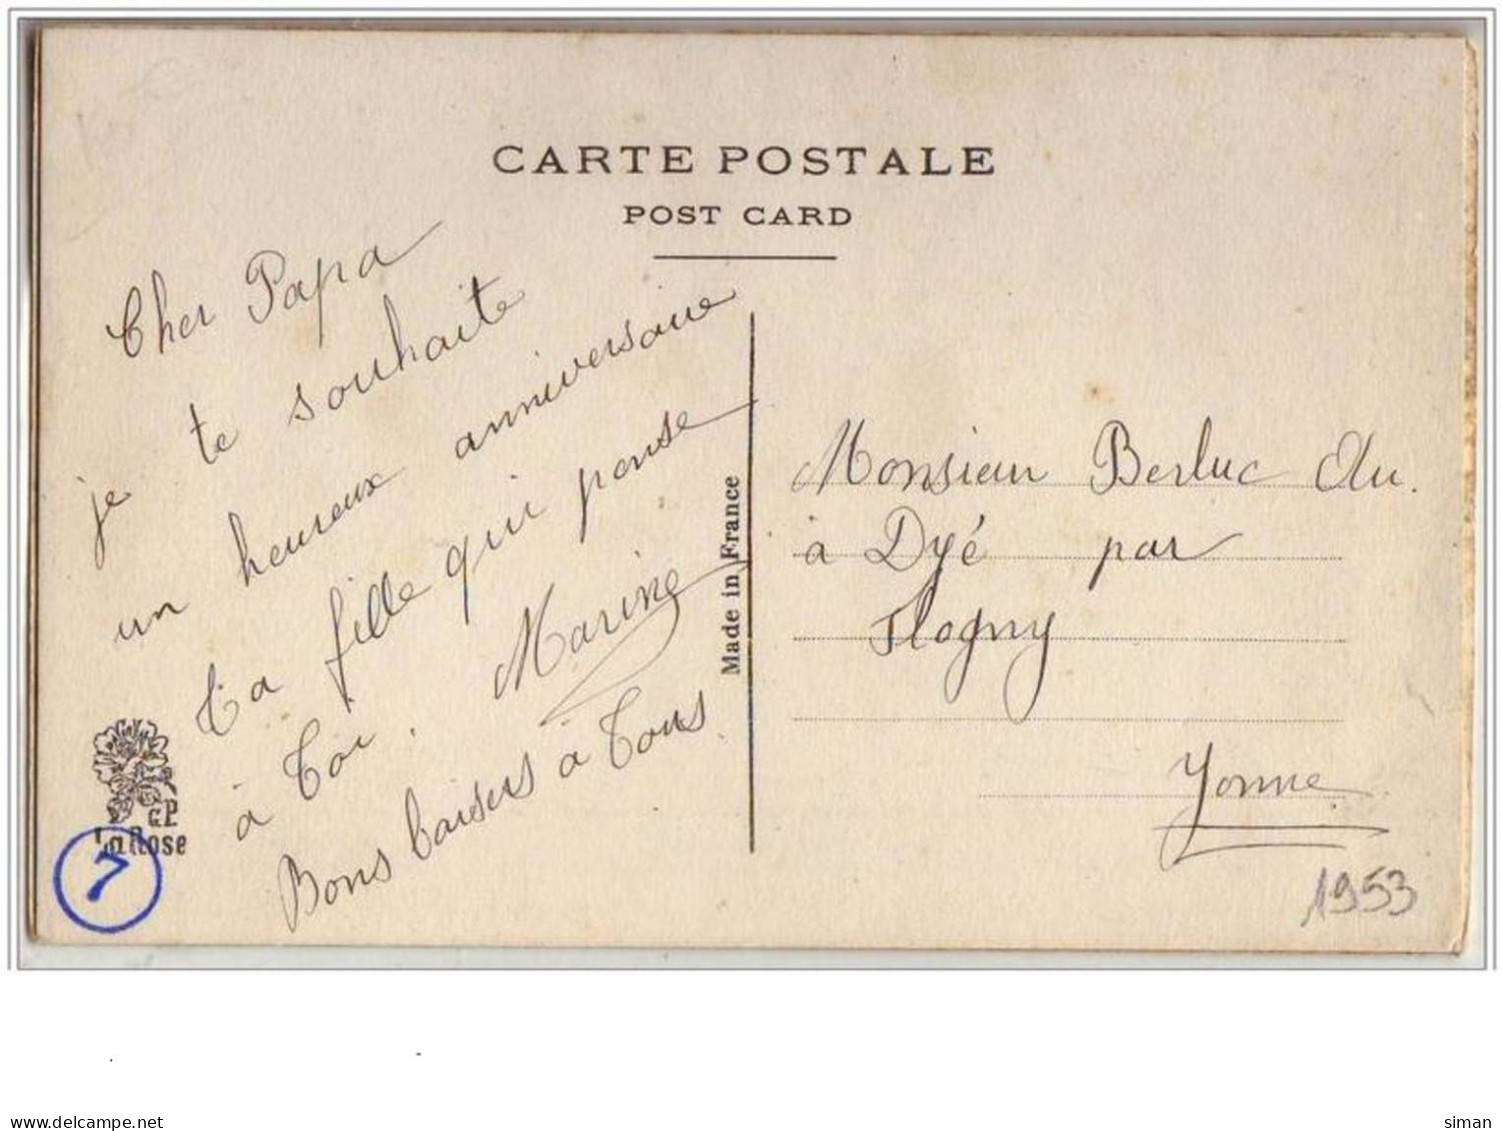 CARTE POSTALE
POST CARD
Cher Papa
je te souhaite
un heureux anniversaire
Ta fille qui pense
à Toi. Marine
Bons baisers à Tous.
Made in France
GP
La Rose
7
Monsieur Berluc
à Dyé par
Flogny
Yonne
1953
delcampe.net
siman